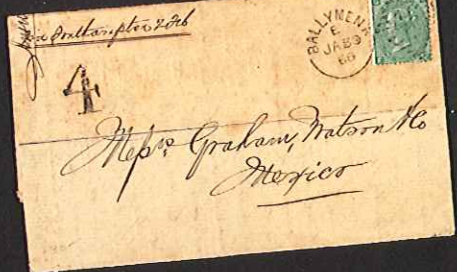 via Southampton 2 Feb
BALLYMENA
E
JA 29
66
4
Messrs Graham, Watson & Co
Mexico